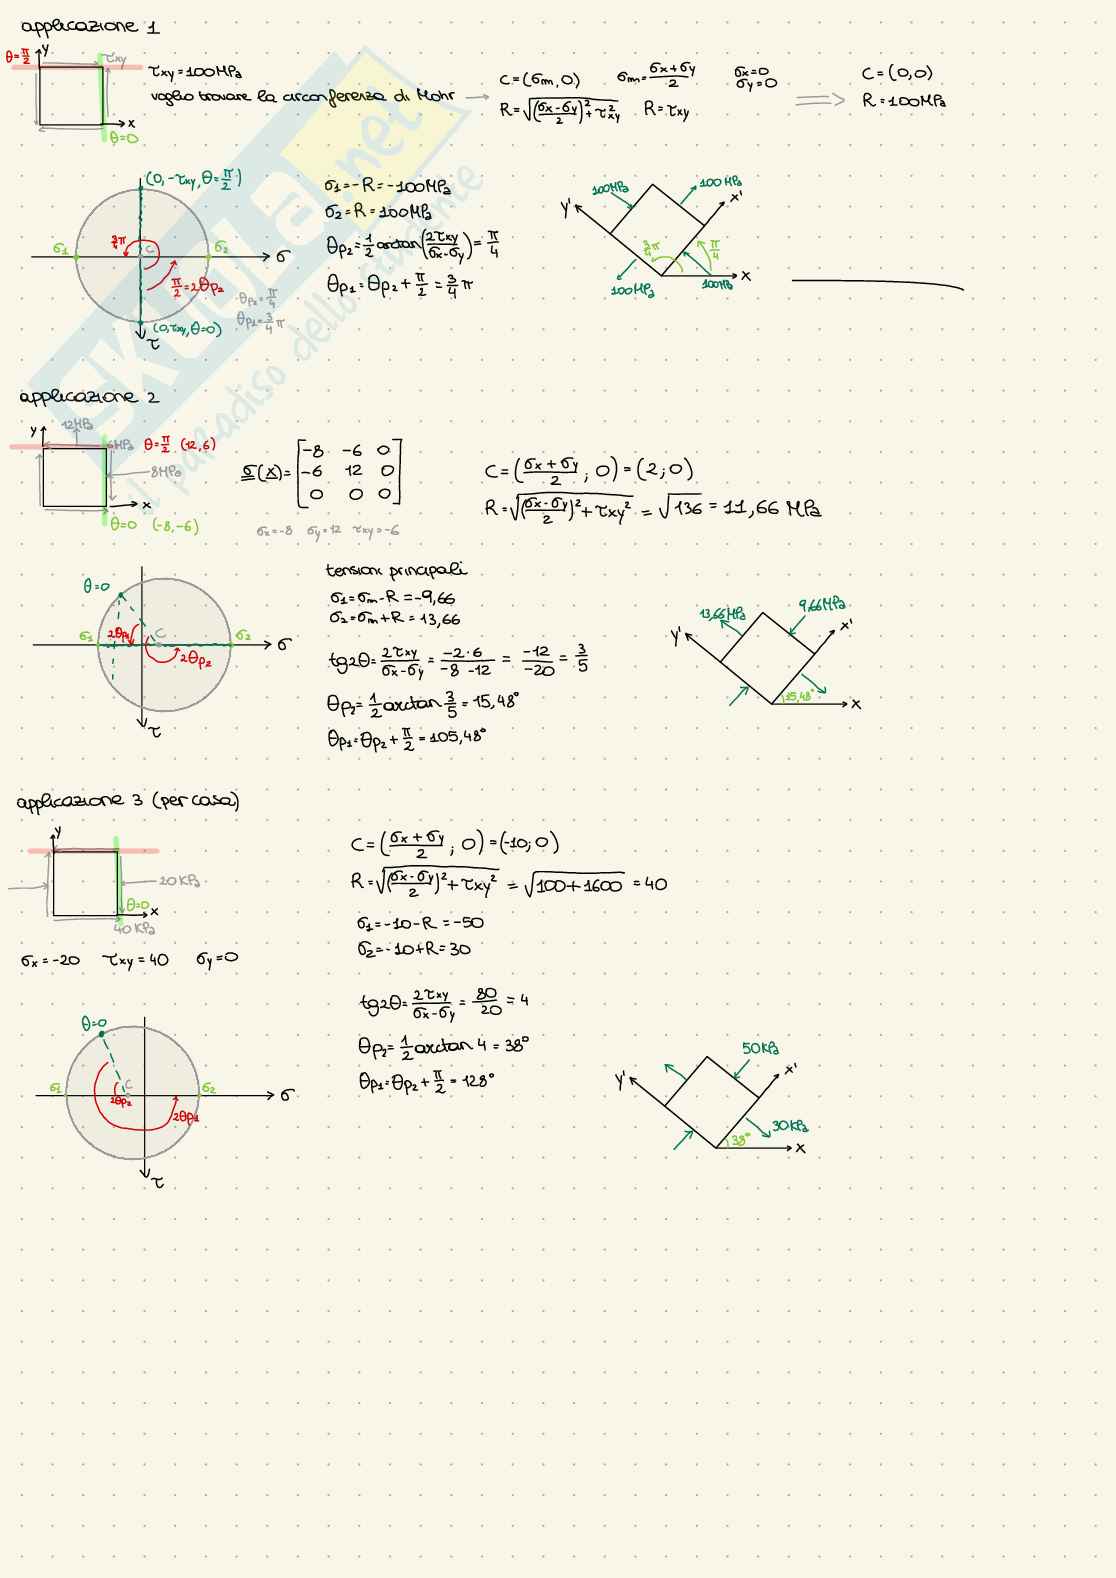 applicazione 1
θ=π/2
y
τxy
x
θ=0
τxy=100MPa
voglio trovare la circonferenza di Mohr
C=(σm,0) σm=(σx+σy)/2 σx=0 σy=0
R=√(((σx-σy)/2)²+τxy²) R=τxy
C=(0,0)
R=100MPa
(0,-τxy,θ=π/2)
σ1
σ2
σ
3/4π
C
π/2=2θp2
θp2=π/4
θp1=3/4π
(0,τxy,θ=0)
τ
σ1=-R=-100MPa
σ2=R=100MPa
θp2=1/2 arctan(2τxy/(σx-σy))=π/4
θp1=θp2+π/2=3/4π
100MPa
100MPa
y'
x'
3/4π
π/4
x
100MPa
100MPa
skuola.net
il paradiso dello studente
applicazione 2
y
12MPa
6MPa
θ=π/2 (12,6)
8MPa
x
θ=0 (-8,-6)
σ(x)=[-8 -6 0
-6 12 0
0 0 0]
σx=-8 σy=12 τxy=-6
C=((σx+σy)/2; 0)=(2;0)
R=√(((σx-σy)/2)²+τxy²) = √136 = 11,66 MPa
θ=0
σ1
2θp1
C
σ2
σ
2θp2
τ
tensioni principali
σ1=σm-R=-9,66
σ2=σm+R=13,66
tg2θ=2τxy/(σx-σy)=(-2·6)/(-8-12)=-12/-20=3/5
θp2=1/2 arctan 3/5=15,48°
θp1=θp2+π/2=105,48°
13,66MPa
9,66MPa
y'
x'
15,48°
x
applicazione 3 (per casa)
y
20KPa
θ=0
x
40KPa
σx=-20 τxy=40 σy=0
C=((σx+σy)/2; 0)=(-10;0)
R=√(((σx-σy)/2)²+τxy²) = √(100+1600) = 40
σ1=-10-R=-50
σ2=-10+R=30
tg2θ=2τxy/(σx-σy)=80/20=4
θp2=1/2 arctan 4=38°
θp1=θp2+π/2=128°
θ=0
σ1
C
2θp2
σ2
σ
2θp1
τ
50KPa
y'
x'
30KPa
38°
x